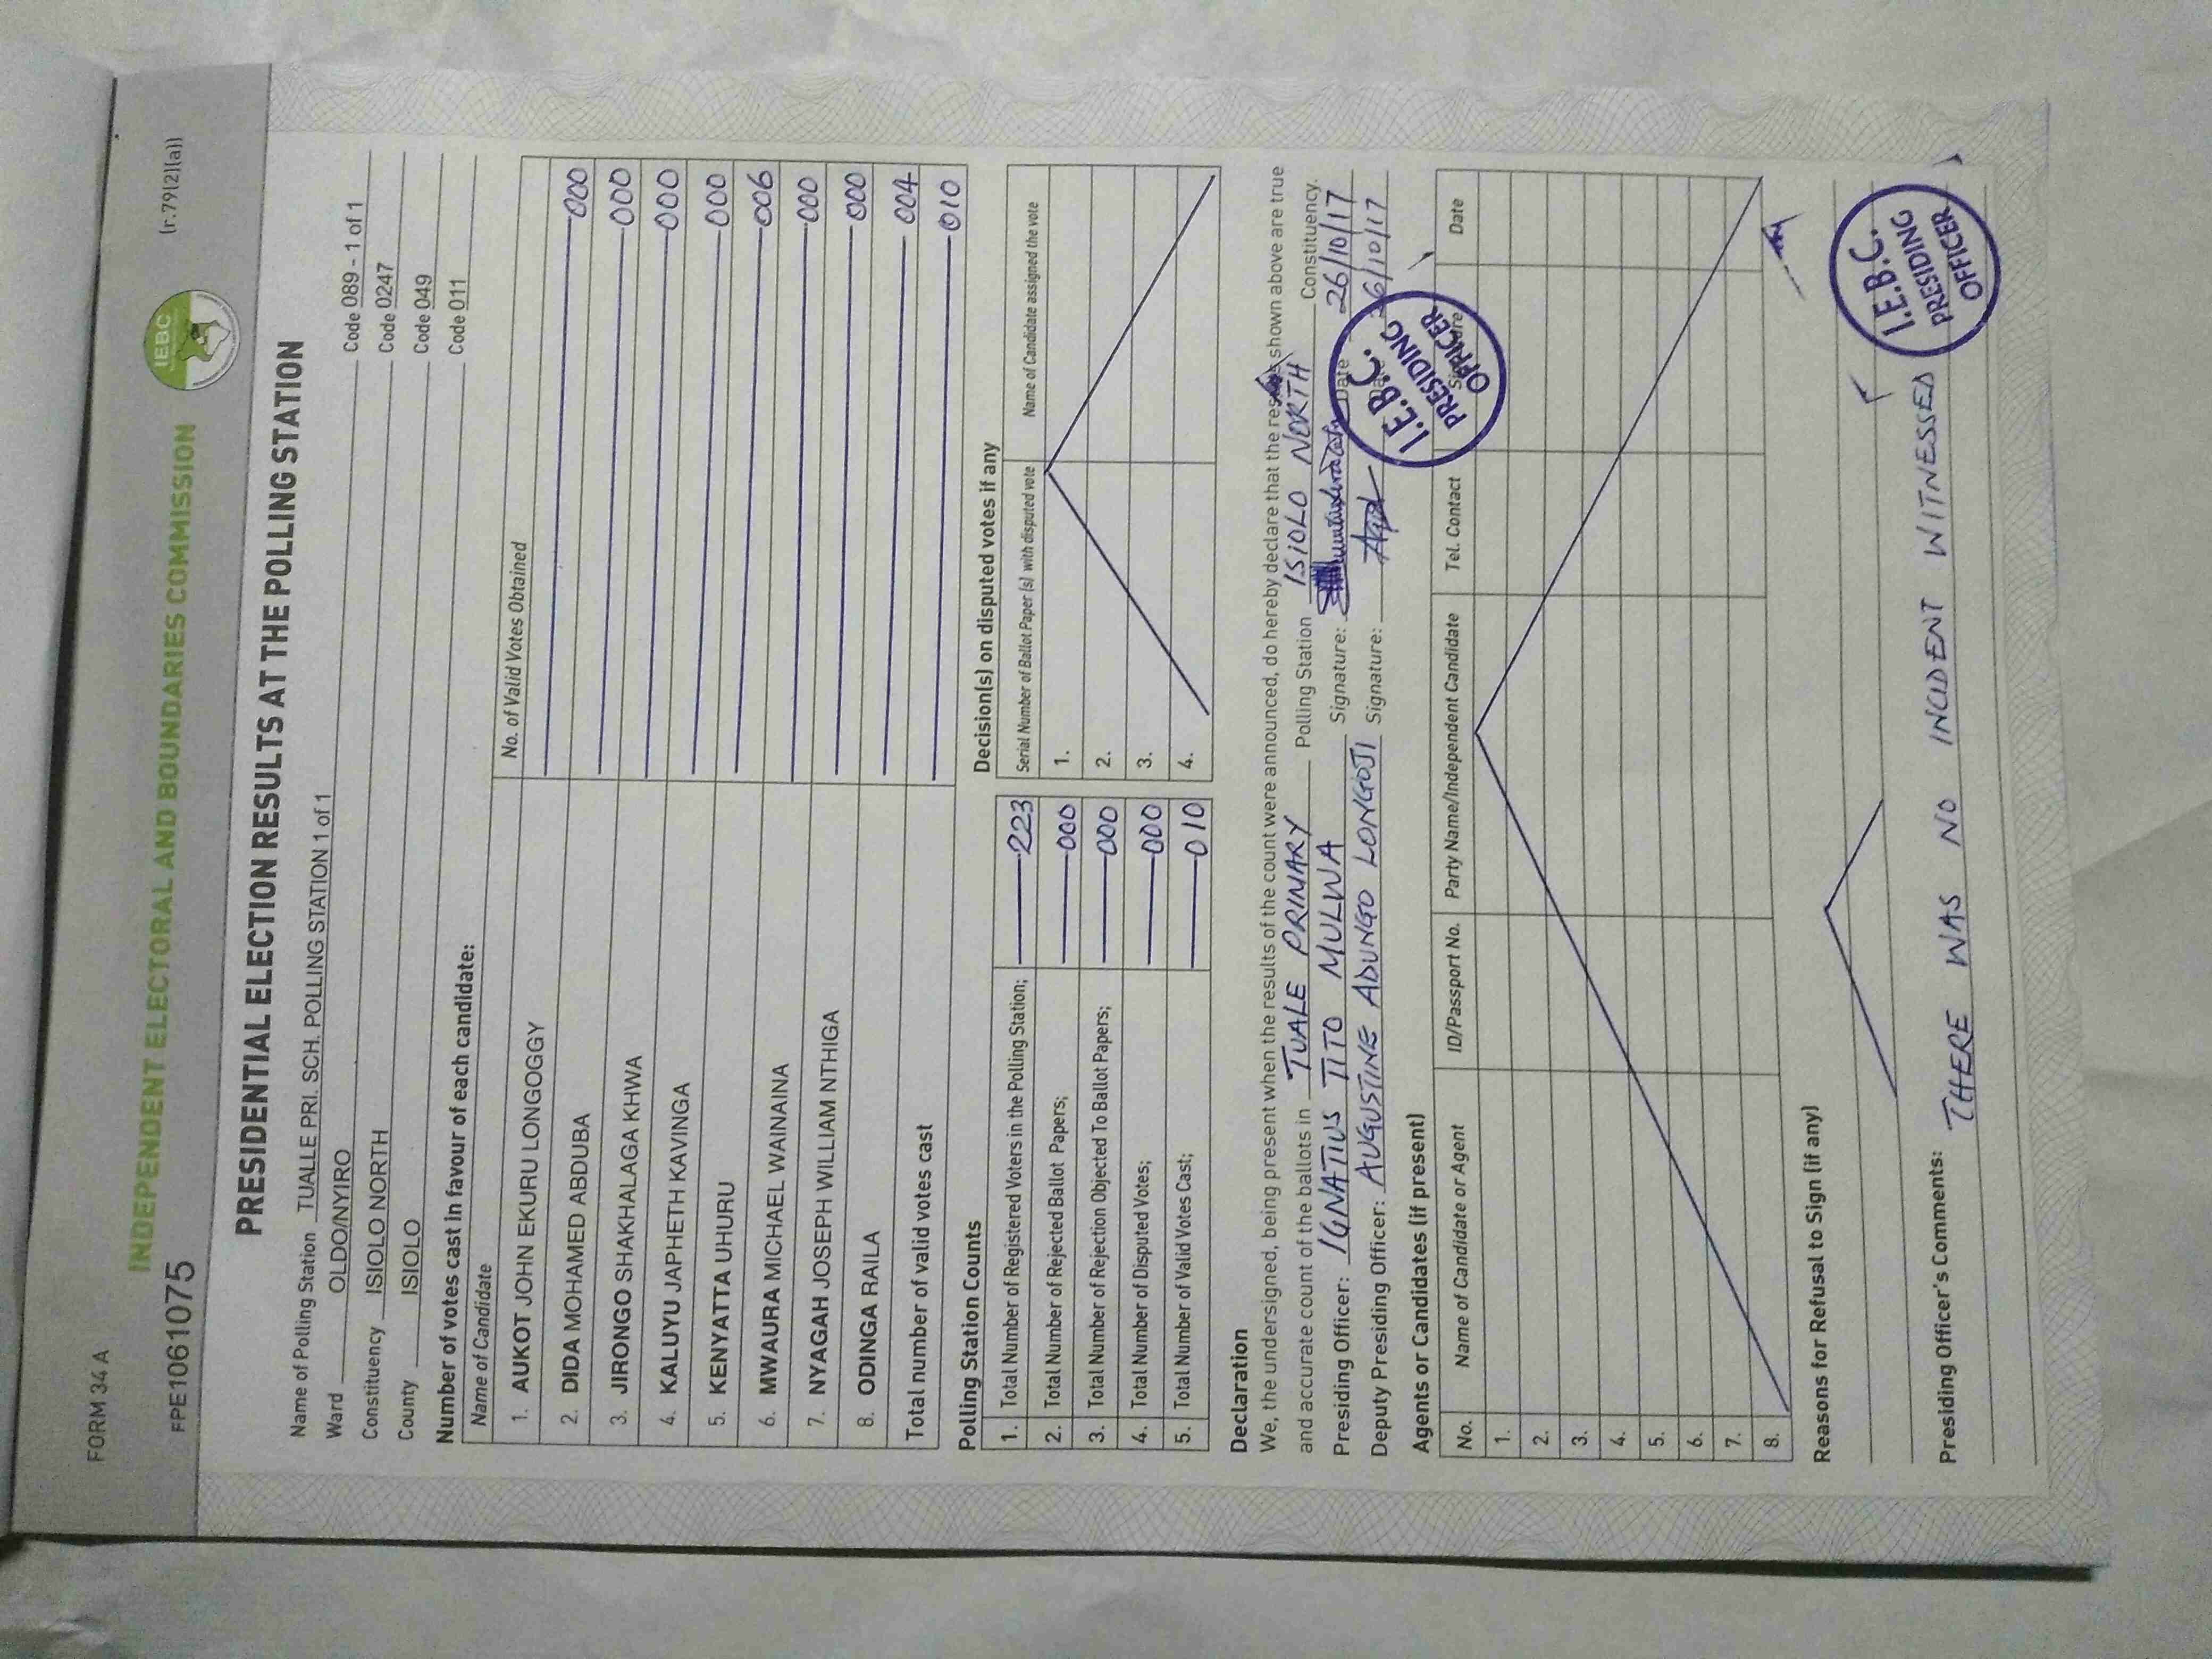 FORM 34 A
(r.79(2)(a))
FPE1061075
IEBC
INDEPENDENT ELECTORAL AND BOUNDARIES COMMISSION
PRESIDENTIAL ELECTION RESULTS AT THE POLLING STATION
Name of Polling Station TUALLE PRI. SCH. POLLING STATION 1 of 1 Code 089 - 1 of 1
Ward OLDO/NYIRO Code 0247
Constituency ISIOLO NORTH Code 049
County ISIOLO Code 011
Number of votes cast in favour of each candidate:
Name of Candidate No. of Valid Votes Obtained
1. AUKOT JOHN EKURU LONGOGGY 000
2. DIDA MOHAMED ABDUBA 000
3. JIRONGO SHAKHALAGA KHWA 000
4. KALUYU JAPHETH KAVINGA 000
5. KENYATTA UHURU 006
6. MWAURA MICHAEL WAINAINA 000
7. NYAGAH JOSEPH WILLIAM NTHIGA 000
8. ODINGA RAILA 004
Total number of valid votes cast 010
Polling Station Counts
1. Total Number of Registered Voters in the Polling Station; 223
2. Total Number of Rejected Ballot Papers; 000
3. Total Number of Rejection Objected To Ballot Papers; 000
4. Total Number of Disputed Votes; 000
5. Total Number of Valid Votes Cast; 010
Decision(s) on disputed votes if any
Serial Number of Ballot Paper (s) with disputed vote Name of Candidate assigned the vote
1.
2.
3.
4.
Declaration
We, the undersigned, being present when the results of the count were announced, do hereby declare that the results shown above are true
and accurate count of the ballots in TUALE PRIMARY Polling Station ISIOLO NORTH Constituency.
Presiding Officer: IGNATIUS TITO MULWA Signature: Date 26/10/17
Deputy Presiding Officer: AUGUSTINE ADUNGO LONGOJI Signature: Date 26/10/17
I.E.B.C. PRESIDING OFFICER
Agents or Candidates (if present)
No. Name of Candidate or Agent ID/Passport No. Party Name/Independent Candidate Tel. Contact Signature Date
1.
2.
3.
4.
5.
6.
7.
8.
Reasons for Refusal to Sign (if any)
Presiding Officer's Comments:
THERE WAS NO INCIDENT WITNESSED
I.E.B.C. PRESIDING OFFICER